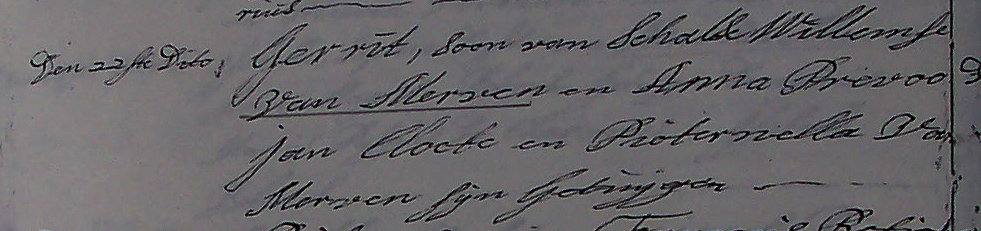 rius
Den 22ste Dito, Gerrit, Soon van Schalk Willemse
Van Merven en Anna Prevoo
jan Cloete en Pieternella Van
Merven sijn Getuijgen